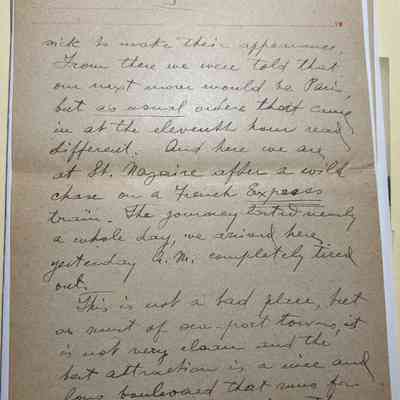 sick to make their appearance.
From there we were told that
our next move would be Paris,
but as usual orders that came
in at the eleventh hour read
different. And here we are
at St. Nazaire after a wild
chase on a French Express
train. The journey lasted nearly
a whole day, we arrived here
yesterday A.M. completely tired
out.
This is not a bad place, but
as most of sea-port towns, it
is not very clean and the
best attraction is a nice and
long boulevard that runs for